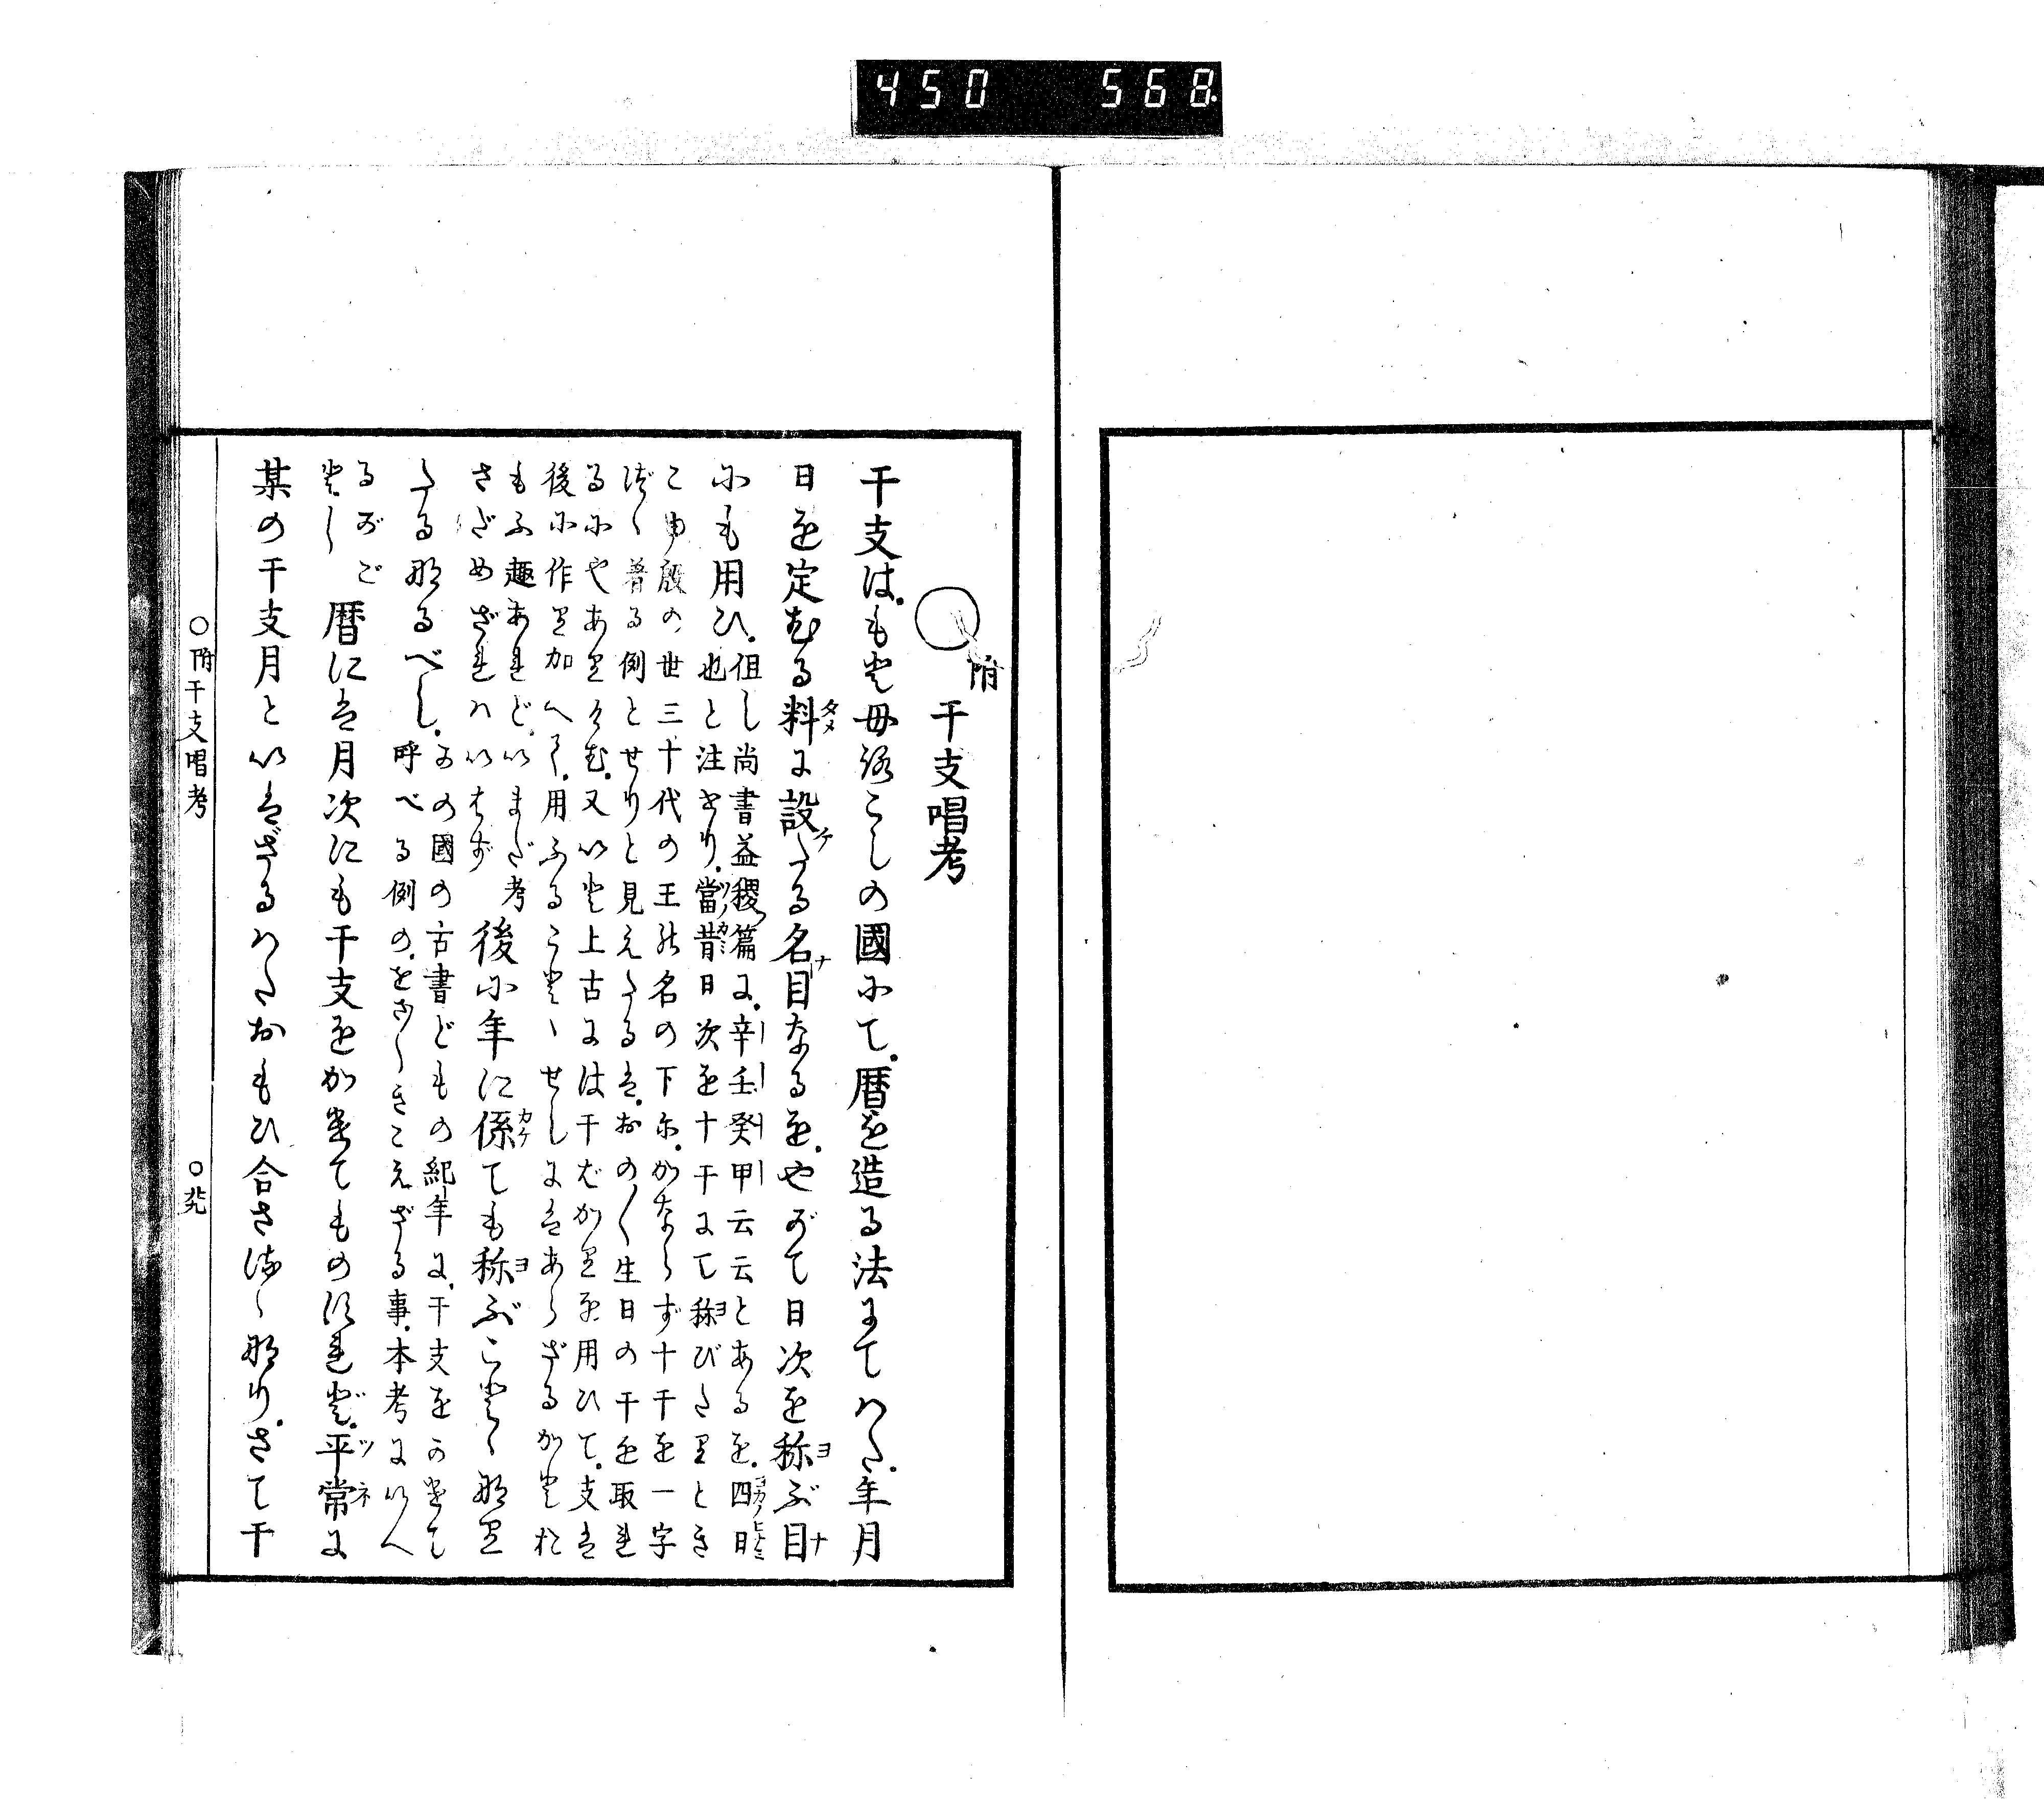 450 568
附
干支唱考
干支は。もと母論こしの國にて。暦を造る法にてハた。年月
日を定むる料に設たる名目なるを。やがて日次を称ぶ目
にも用ひ。
但し尚書益稷篇に。辛壬癸甲云云とあるを。四日
也と注せり。當昔日次を十干にて称びたりとき
こゆ殷の世三十代の王の名の下に。かならず十干を一字
づゝ着る例とせりと見えたるは。おの〳〵生日の干を取れ
るにやありけむ。又いと上古には干ばかりを用ひて。支は
後に作り加へて。用ふることゝせしにはあらざるかとお
もふ趣あれど。いまだ考
さだめざれハいはず
後に年に係ても称ぶことゝ那り
たる那るべし。
かの國の古書どもの紀年に。干支をかきて
呼べる例の。をさ〳〵きこえざる事。本考にいへ
るがご
とし
暦には月次にも干支をかきてものすれど。平常に
某の干支月といはざるハたおもひ合さすべ那り。さて干
○附干支唱考